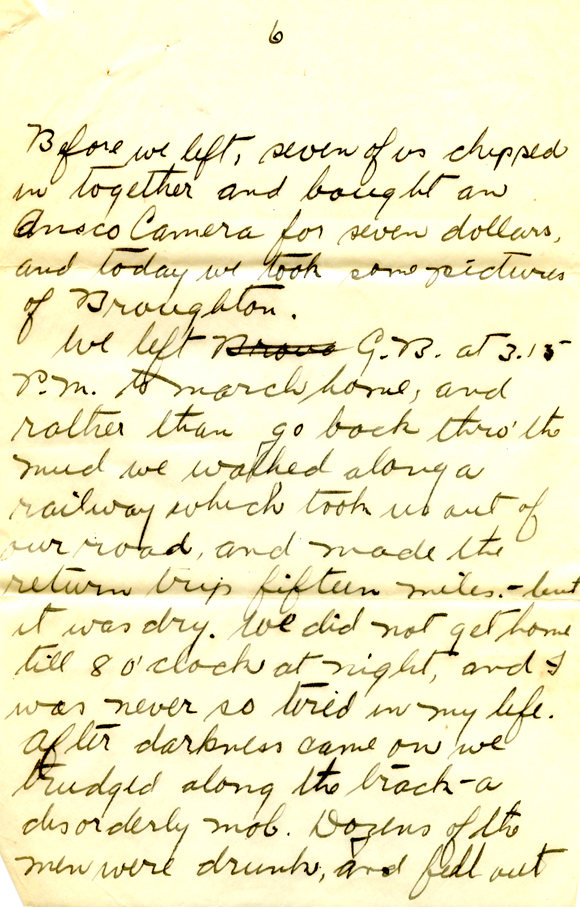 6
Before we left, seven of us chipped
in together and bought an
Ansco Camera for seven dollars,
and today we took some pictures
of Broughton.
We left G.B. at 3.15
P.M. to march home, and
rather than go back thro' the
mud we walked along a
railway which took us out of
our road, and made the
return trip fifteen miles. - but
it was dry. We did not get home
till 8 o'clock at night, and I
was never so tired in my life.
After darkness came on we
trudged along the track - a
disorderly mob. Dozens of the
men were drunk, and fell out